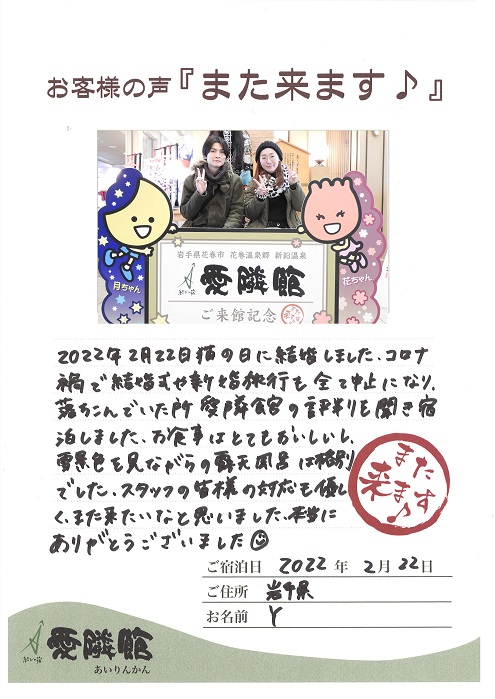 お客様の声『また来ます♪』
岩手県花巻市 花巻温泉郷 新鉛温泉
愛隣館
ご来館記念
月ちゃん
花ちゃん
2022年2月22日猫の日に結婚しました、コロナ
禍で結婚式や新婚旅行も全て中止になり、
落ちこんでいた所愛隣館の評判を聞き宿
泊しました、お食事はとてもおいしいし、
雪景色を見ながらの露天風呂は格別
でした、スタッフの皆様の対応も優し
く、また来たいなと思いました、本当に
ありがとうございました
また来ます♪
ご宿泊日 2022年 2月 22日
ご住所 岩手県
お名前 Y
愛隣館
あいりんかん